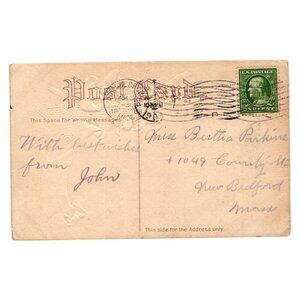 Post Card
This Space for Writing Messages
With best wishes
from
John
Miss Bertha Parkins
#1049 County St
New Bedford
Mass
This side for the Address only.